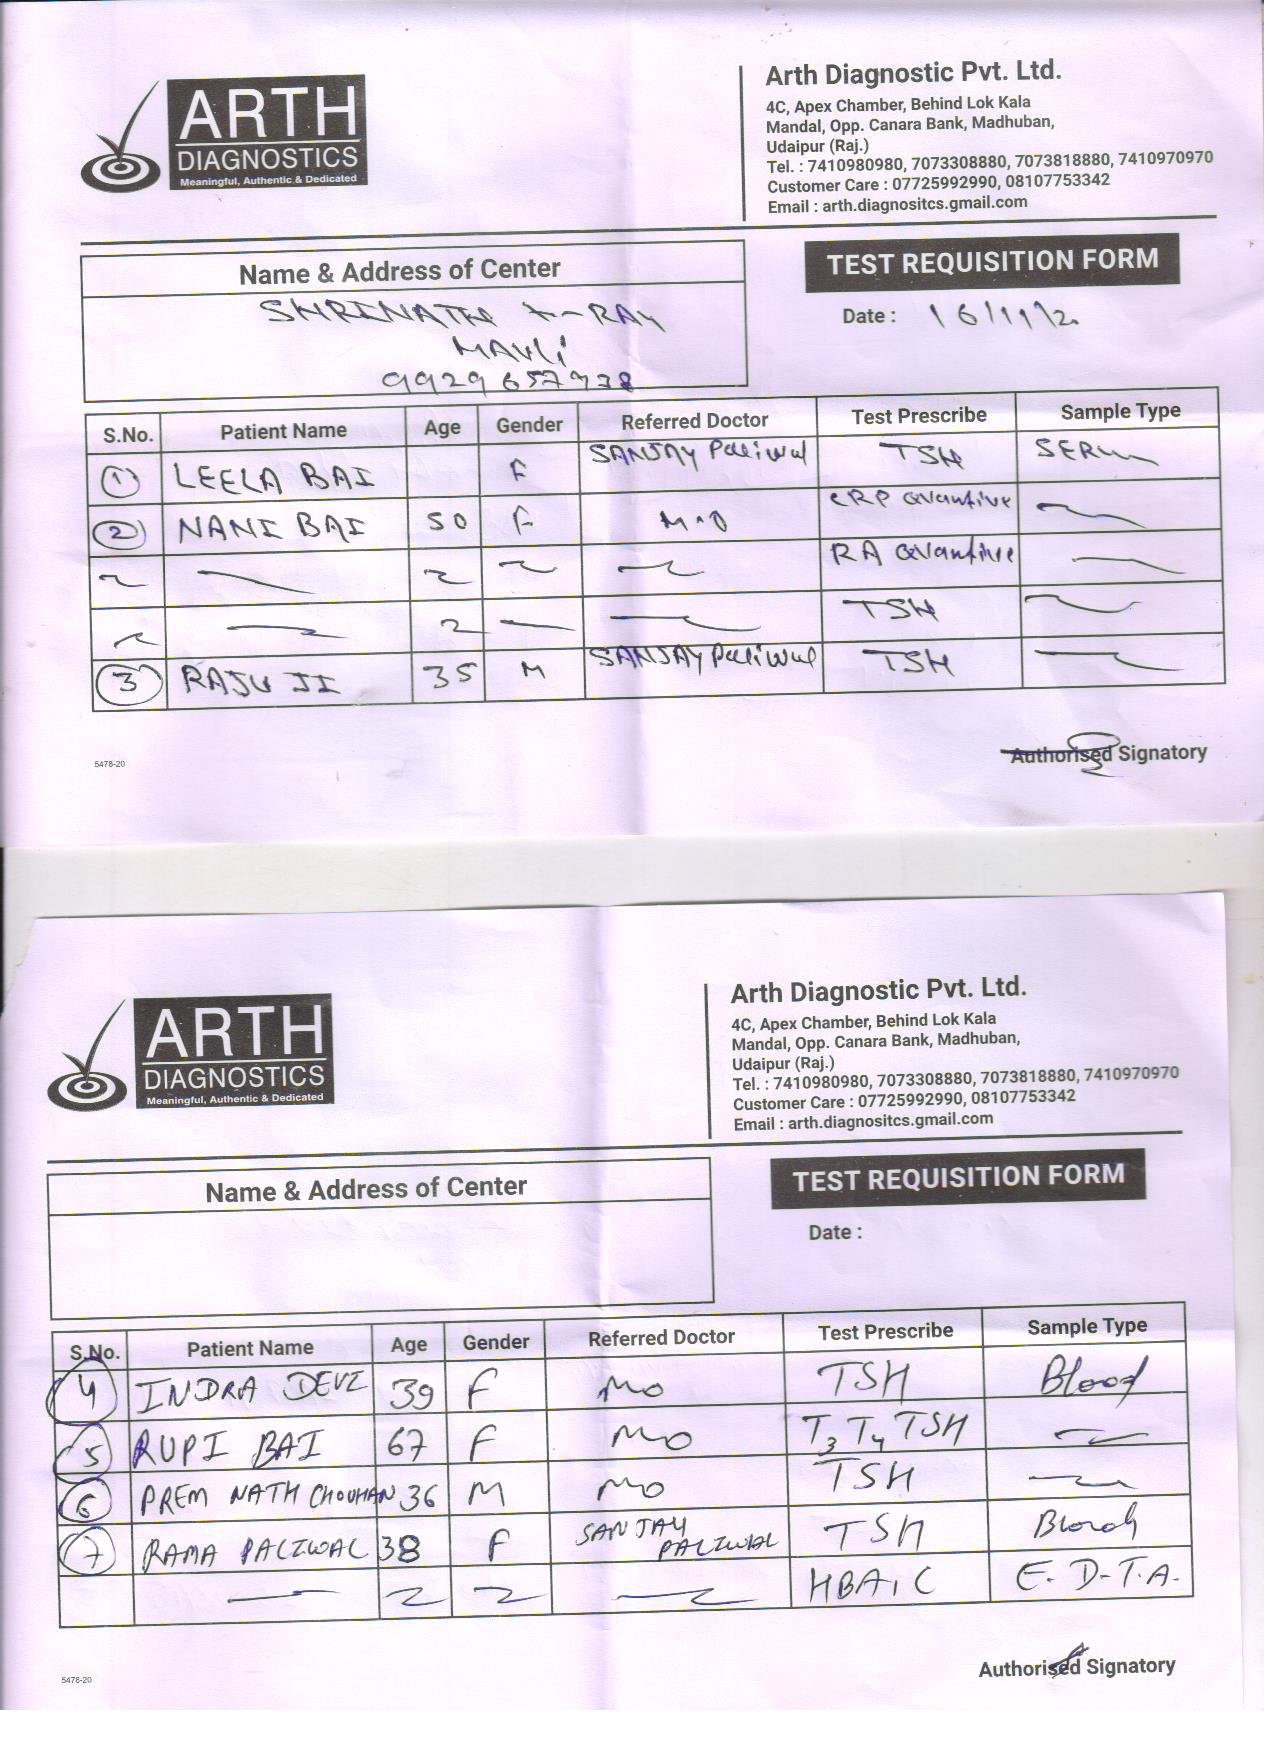 ARTH
DIAGNOSTICS
Meaningful, Authentic & Dedicated
Arth Diagnostic Pvt. Ltd.
4C, Apex Chamber, Behind Lok Kala
Mandal, Opp. Canara Bank, Madhuban,
Udaipur (Raj.)
Tel. : 7410980980, 7073308880, 7073818880, 7410970970
Customer Care : 07725992990, 08107753342
Email : arth.diagnositcs.gmail.com
Name & Address of Center
TEST REQUISITION FORM
SHRINATH X-RAY
MAVLI
Date : 16/11/20
S.No. Patient Name Age Gender Referred Doctor Test Prescribe Sample Type
1 LEELA BAI F SANJAY Paliwal TSH SERUM
2 NANI BAI 50 F M.O CRP
RA
TSH
3 RAJU JI 35 M SANJAY Paliwal TSH
Authorised Signatory
5478-20
ARTH
DIAGNOSTICS
Meaningful, Authentic & Dedicated
Arth Diagnostic Pvt. Ltd.
4C, Apex Chamber, Behind Lok Kala
Mandal, Opp. Canara Bank, Madhuban,
Udaipur (Raj.)
Tel. : 7410980980, 7073308880, 7073818880, 7410970970
Customer Care : 07725992990, 08107753342
Email : arth.diagnositcs.gmail.com
Name & Address of Center
TEST REQUISITION FORM
Date :
S.No. Patient Name Age Gender Referred Doctor Test Prescribe Sample Type
4 INDRA DEVI 39 F MO TSH Blood
5 RUPI BAI 67 F MO T3 T4 TSH
6 PREM NATH CHOUHAN 36 M MO TSH
7 RAMA PALIWAL 38 F SANJAY PALIWAL TSH Blood
HBA1C E.D.T.A.
Authorised Signatory
5478-20